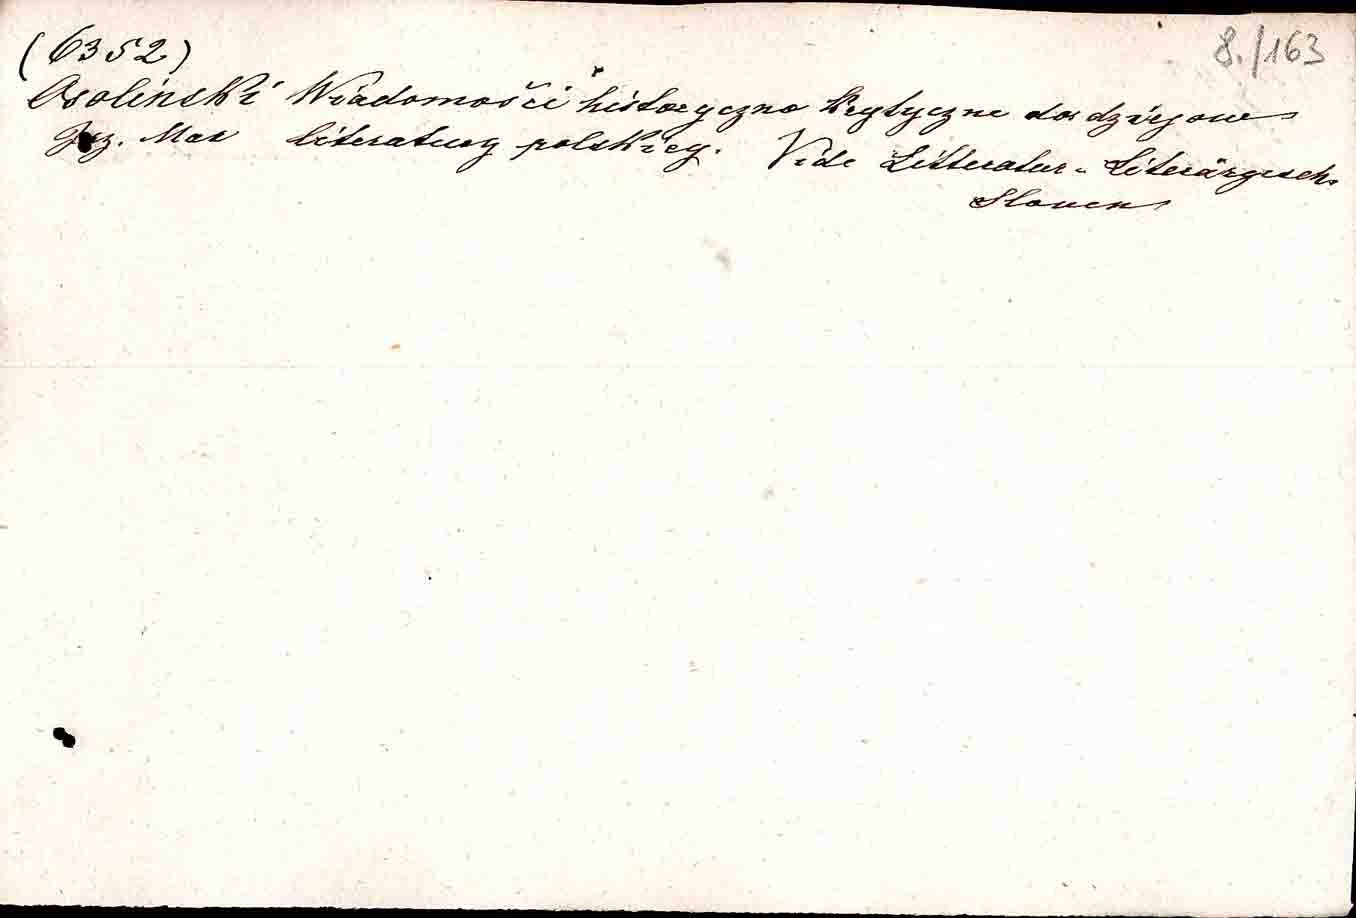 (6352) 8./163
Osolinski Wiadomošci historyczno krytyczne do dziejow
Joz. Max literatury polskiey. Vide Litteratur u. Literärgesch.
Slaven